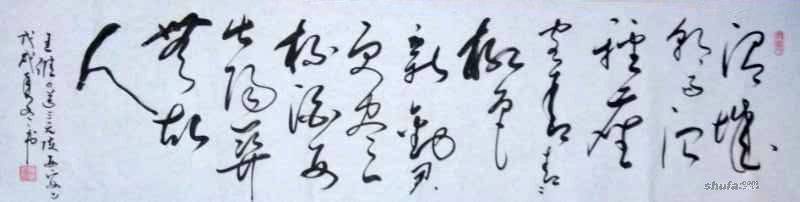 渭城
朝雨浥
輕塵
客舍青青
柳色
新勸君
更盡一
杯酒西
出陽關
無故
人
王維
戊戌
书
shufa